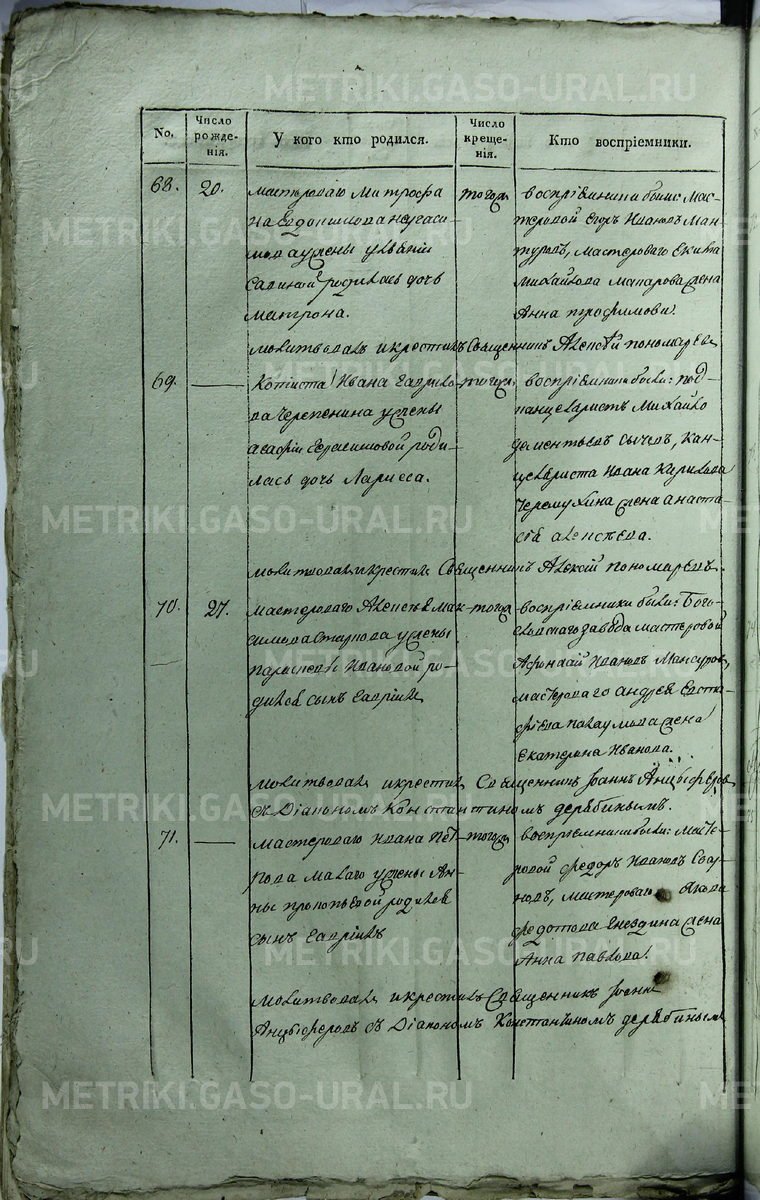 METRIKI.GASO-URAL.RU
No.
Число рожде-нія.
У кого кто родился.
Число креще-нія.
Кто воспріемники.
68.
20.
мастероваго Митрофа
на Евдокимова
у жены
родилась дочь
Матрона.
тогож
воспріемники были: Мас-
теровой Егоръ Ивановъ Ман-
туровъ, мастероваго Екима
Михайлова Макарова жена
Анна трофимова.
молитвовалъ и крестилъ Священникъ Алексѣй пономаревъ
69.
Копіиста Ивана Гаврило-
ва Черепенина у жены
Агафіи Герасимовой роди
лась дочь Лариса.
тогож
воспріемники были: под-
канцеляристъ Михайло
дементьевъ сычевъ, Кан-
целяриста Ивана Кирилова
Черемухина жена анаста-
сія алексѣева.
молитвовалъ и крестилъ Священникъ Алексѣй пономаревъ.
70.
27.
мастероваго Алексѣя Мак-
симова Старкова у жены
Ивановой ро-
дился сынъ Гавріилъ
тогож
воспріемники были: Бого-
словскаго завода мастеровой
Афонасій Ивановъ Мансуровъ,
мастероваго андрея Евста-
фіева жена
Екатерина Иванова.
молитвовалъ и крестилъ Священникъ Іоаннъ Анцыферовъ
съ Діакономъ Константиномъ дерябинымъ.
71.
мастероваго Ивана Пет-
рова у жены Ан-
ны прокопьевой родился
сынъ Гавріилъ
тогож
воспріемники были: Масте-
ровой федоръ Ивановъ
мастероваго Якова
федотова Гнездина жена
Анна Павлова.
молитвовалъ и крестилъ Священникъ Іоаннъ
Анцыферовъ съ Діакономъ Константиномъ дерябинымъ